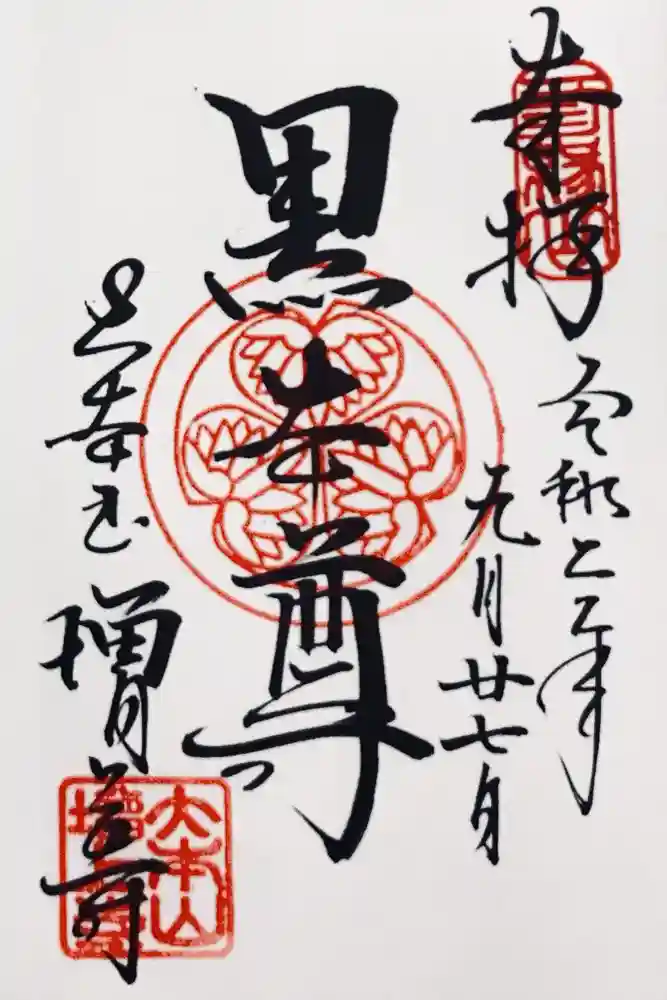 奉拝
令和二年
九月廿七日
黒本尊
大本山 増上寺
大本山
増上寺